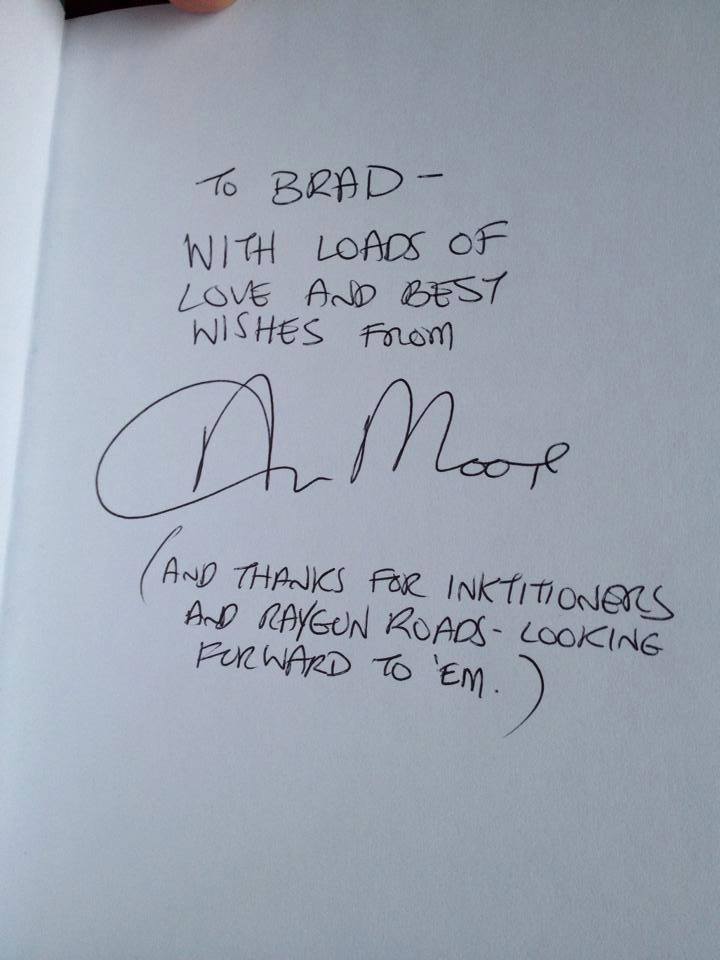 To BRAD -
WITH LOADS OF
LOVE AND BEST
WISHES FROM
Alan Moore
(AND THANKS FOR INKTITIONERS
AND RAYGUN ROADS - LOOKING
FORWARD TO 'EM.)